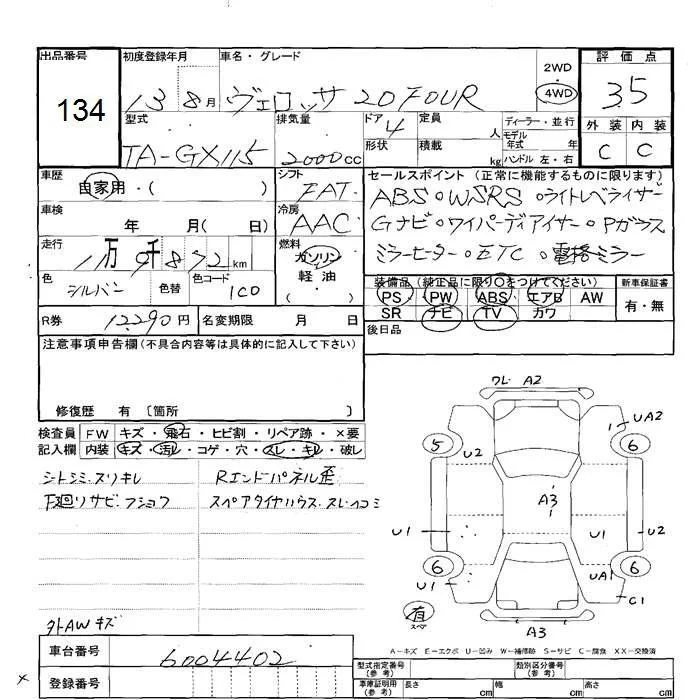 出品番号 初度登録年月 車名・グレード 評価点
134 13 8月 ヴェロッサ 20FOUR 2WD 4WD 3.5
型式 排気量 ドア 4 定員 人 ディーラー・並行 外装 内装
TA-GX115 2000cc 形状 積載 kg モデル年式 年 ハンドル 左・右 C C
車歴 自家用・( ) シフト FAT セールスポイント (正常に機能するものに限ります)
車検 年 月( 日) 冷房 AAC ABS・WSRS・ライトレベライザー
走行 11万9千872km 燃料 ガソリン 軽油 ( ) Gナビ・ワイパーディアイサー・Pガラス
色 シルバー 色替 色コード 1C0 ミラーヒーター・ETC・電格ミラー
装備品 (純正品に限り○をつけてください) 新車保証書
PS PW ABS エアB AW 有・無
SR ナビ TV カワ
R券 12290円 名変期限 月 日 後日品
注意事項申告欄 (不具合内容等は具体的に記入して下さい)
修復歴 有 〔箇所 〕
検査員 FW キズ・飛石・ヒビ割・リペア跡・×要
記入欄 内装 キズ・汚レ・コゲ・穴・スレ・キレ・破レ
シトシミ・スリキレ Rエンドパネル歪
下廻りサビ・フショク スペアタイヤハウス・スレ・ヘコミ
外AWキズ
ワレ A2
UA2
5 U2 6
A3
U1 U1 U2
6 6
U1 UA1 C1
有 スペア
A3
A−キズ E−エクボ U−凹み W−補修跡 S−サビ C−腐食 XX−交換済
車台番号 6004402
登録番号
型式指定番号 (参考) 類別区分番号 (参考)
車庫証明用 (参考) 長さ cm 幅 cm 高さ cm
×